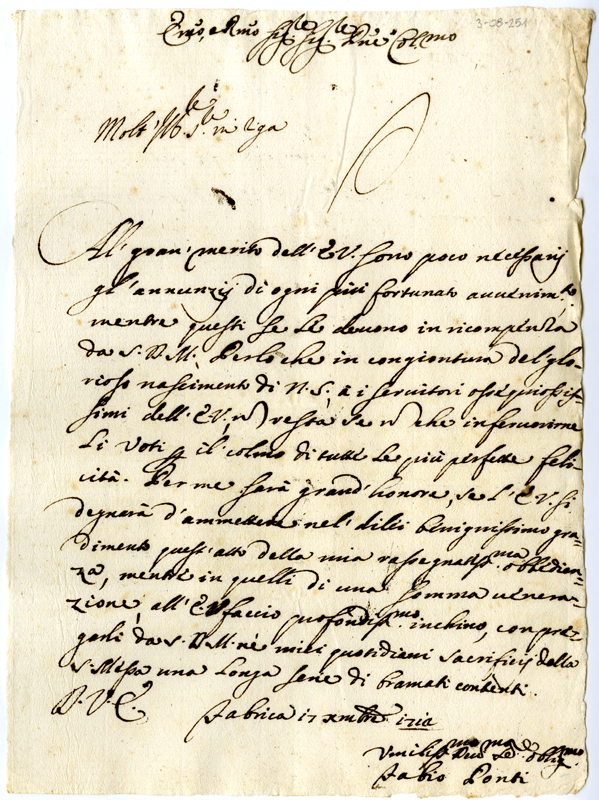 3-05-251
Em̃o, e Rm̃o Sig.re Sig.re Pñe Col.mo
Molt' Ill.re S.re in
Al' gran' merito dell' E.V. sono poco necessarij
gl' annunzij di ogni più fortunato auuenim.to
mentre questi se le deuono in ricompenza
da S. D. M. Perloche in congiontura del glo-
rioso nascimento di N.S., à i seruitori ossequiosis-
simi dell' E.V. ñ resta se ñ che inferuorirne
li voti p il colmo di tutte le più perfette feli-
cità. Per me sarà grand' honore, se l' E.V. si
degnarà d'ammettere nel' di lei benignissimo gra-
dimento quest' atto della mia rassegnatiss.ma obbedien-
za, mentre in quelli di una somma uenera-
zione, all' E.V. faccio profondiss.mo inchino, con pre-
garli da S. D. M. nè miei quotidiani sacrificij della
S. Messa una longa serie di bramati contenti.
D. V. E.
Fabrica 17 xmbre 1710
Vmiliss.mo Deu.mo Se.re oblig.mo
Fabio Ponti